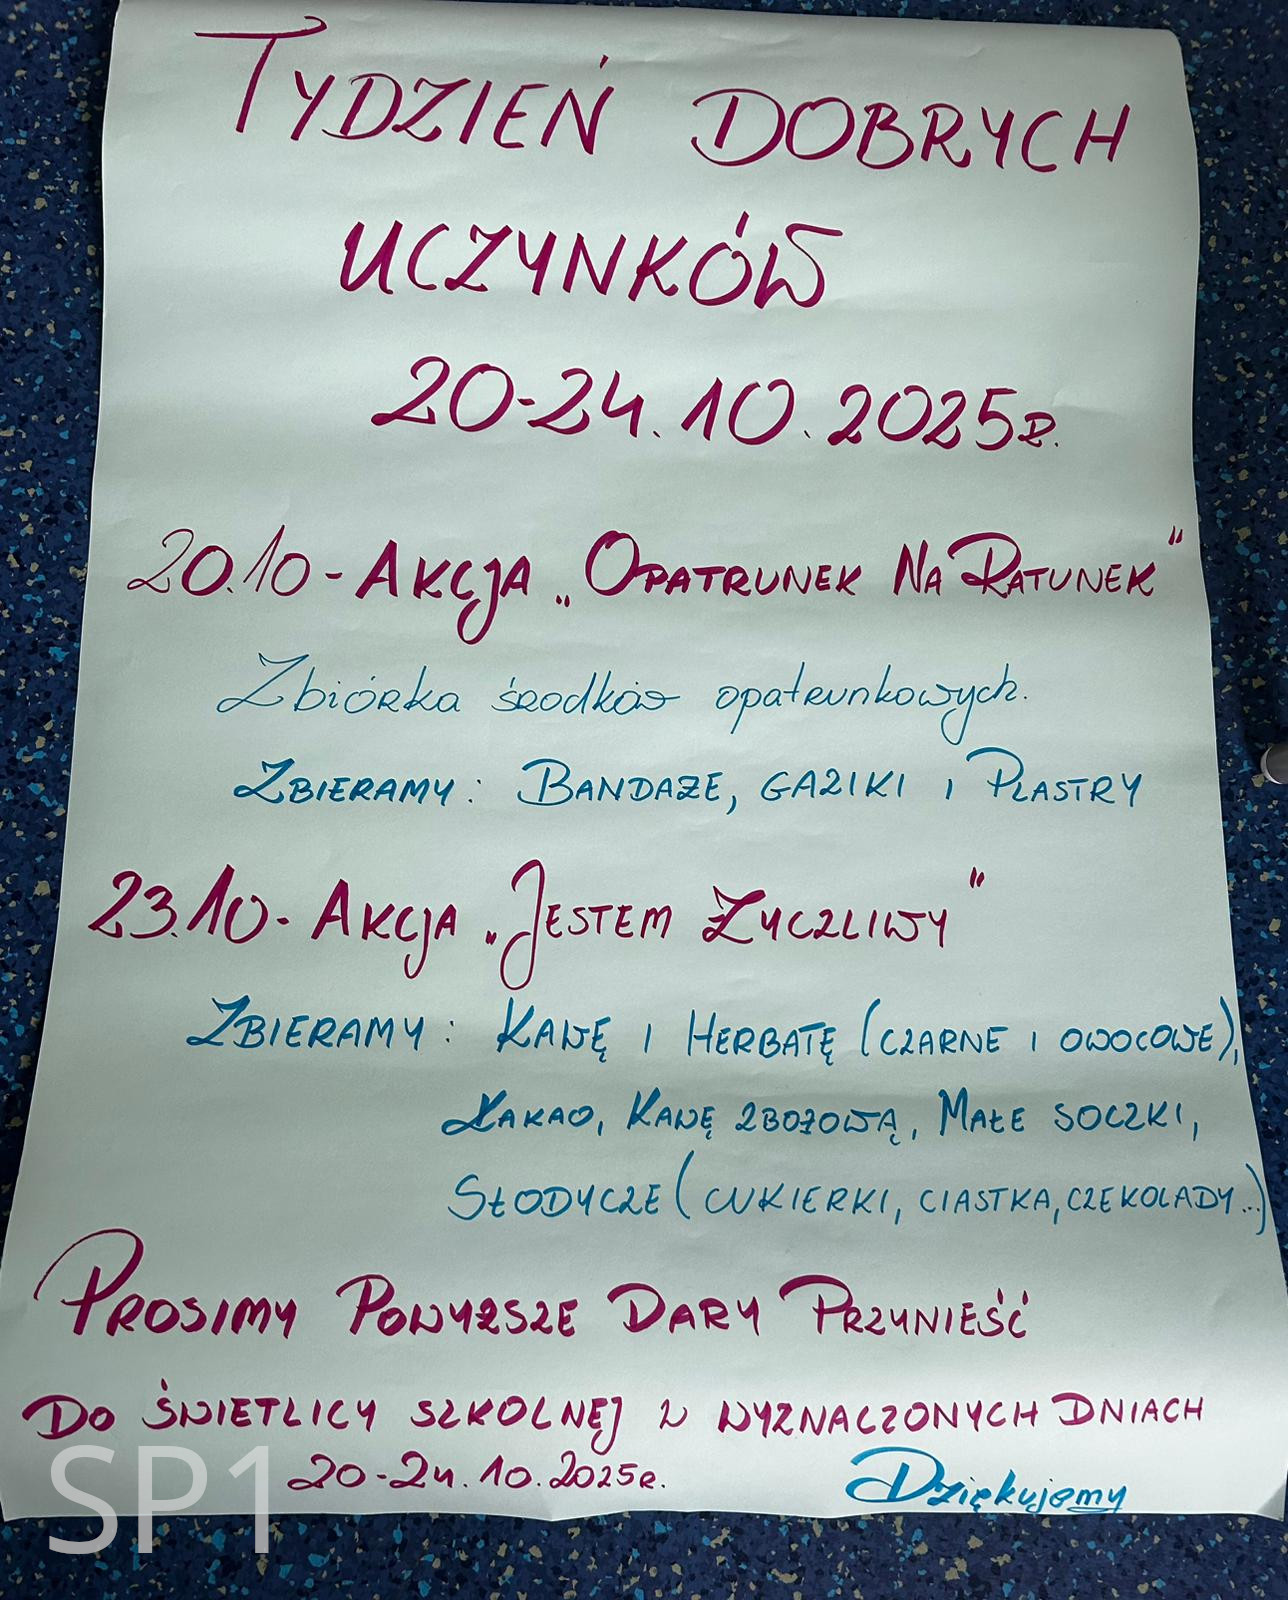 TYDZIEŃ DOBRYCH
UCZYNKÓW
20-24.10.2025r.
20.10 - AKCJA „OPATRUNEK NA RATUNEK”
Zbiórka środków opatrunkowych.
ZBIERAMY: BANDAŻE, GAZIKI I PLASTRY
23.10 - AKCJA „JESTEM ŻYCZLIWY”
ZBIERAMY: KAWĘ I HERBATĘ (CZARNE I OWOCOWE),
KAKAO, KAWĘ ZBOŻOWĄ, MAŁE SOCZKI,
SŁODYCZE (CUKIERKI, CIASTKA, CZEKOLADY...)
PROSIMY POWYŻSZE DARY PRZYNIEŚĆ
DO ŚWIETLICY SZKOLNĘJ W WYZNACZONYCH DNIACH
20-24.10.2025r.
Dziękujemy
SP1